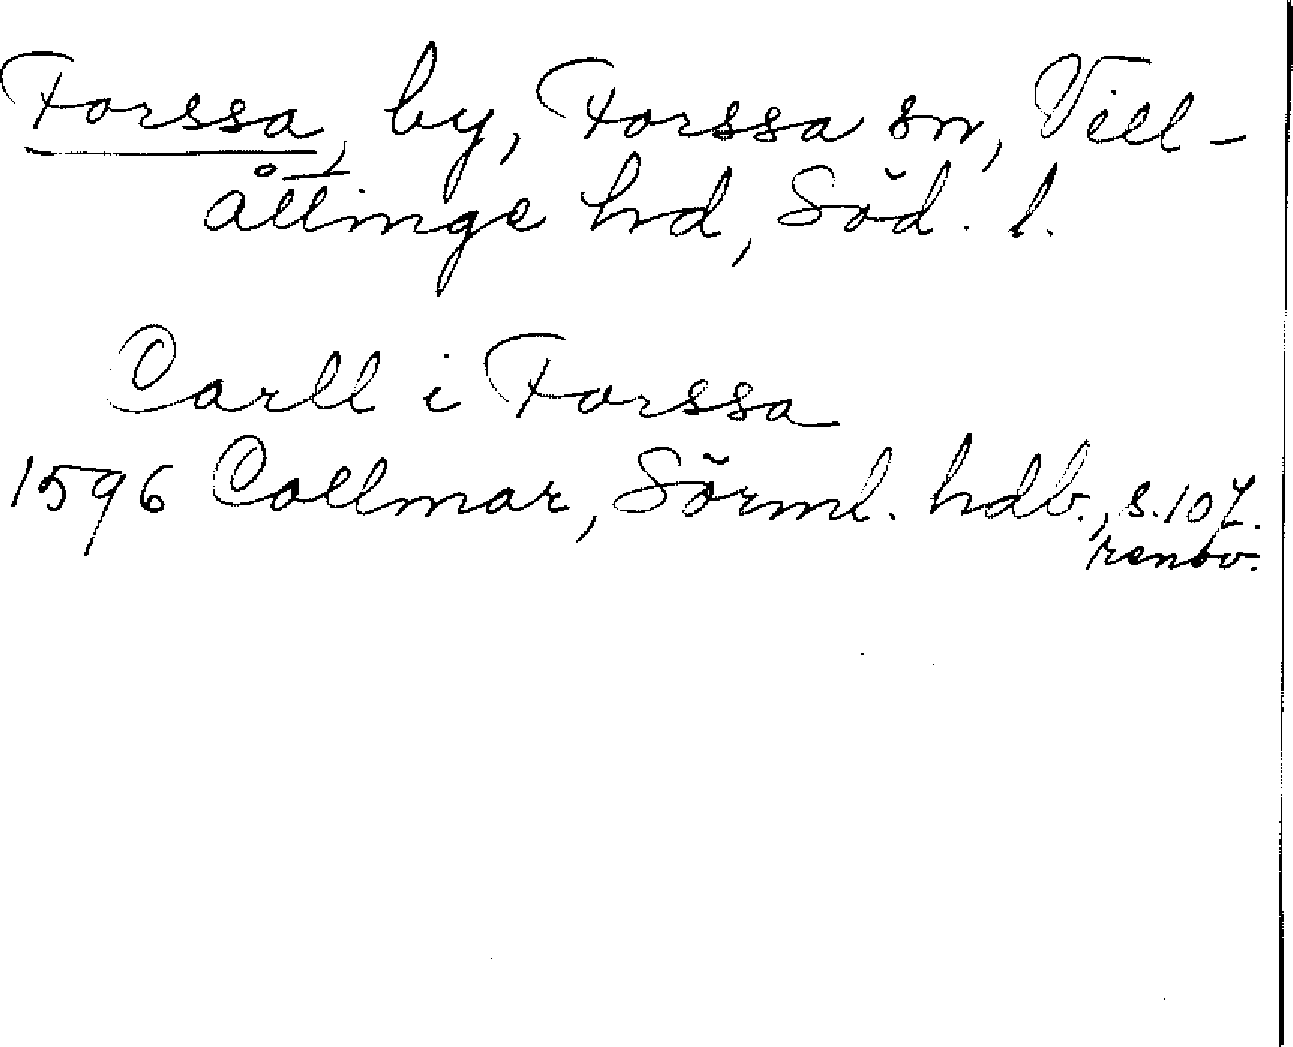 Forssa, by, Forssa sn, Vill-
åttinge hd, Söd. l.
Carll i Forssa
1596 Collmar, Sörml. hdb., s. 107.
renov.